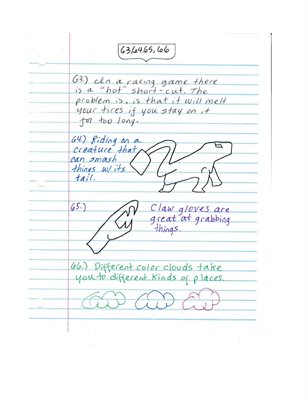 63,64,65,66
63.) In a racing game there
is a "hot" short-cut. The
problem is, is that it will melt
your tires if you stay on it
for too long.
64.) Riding on a
creature that
can smash
things w/its
tail.
65.) Claw gloves are
great at grabbing
things.
66.) Different color clouds take
you to different kinds of places.